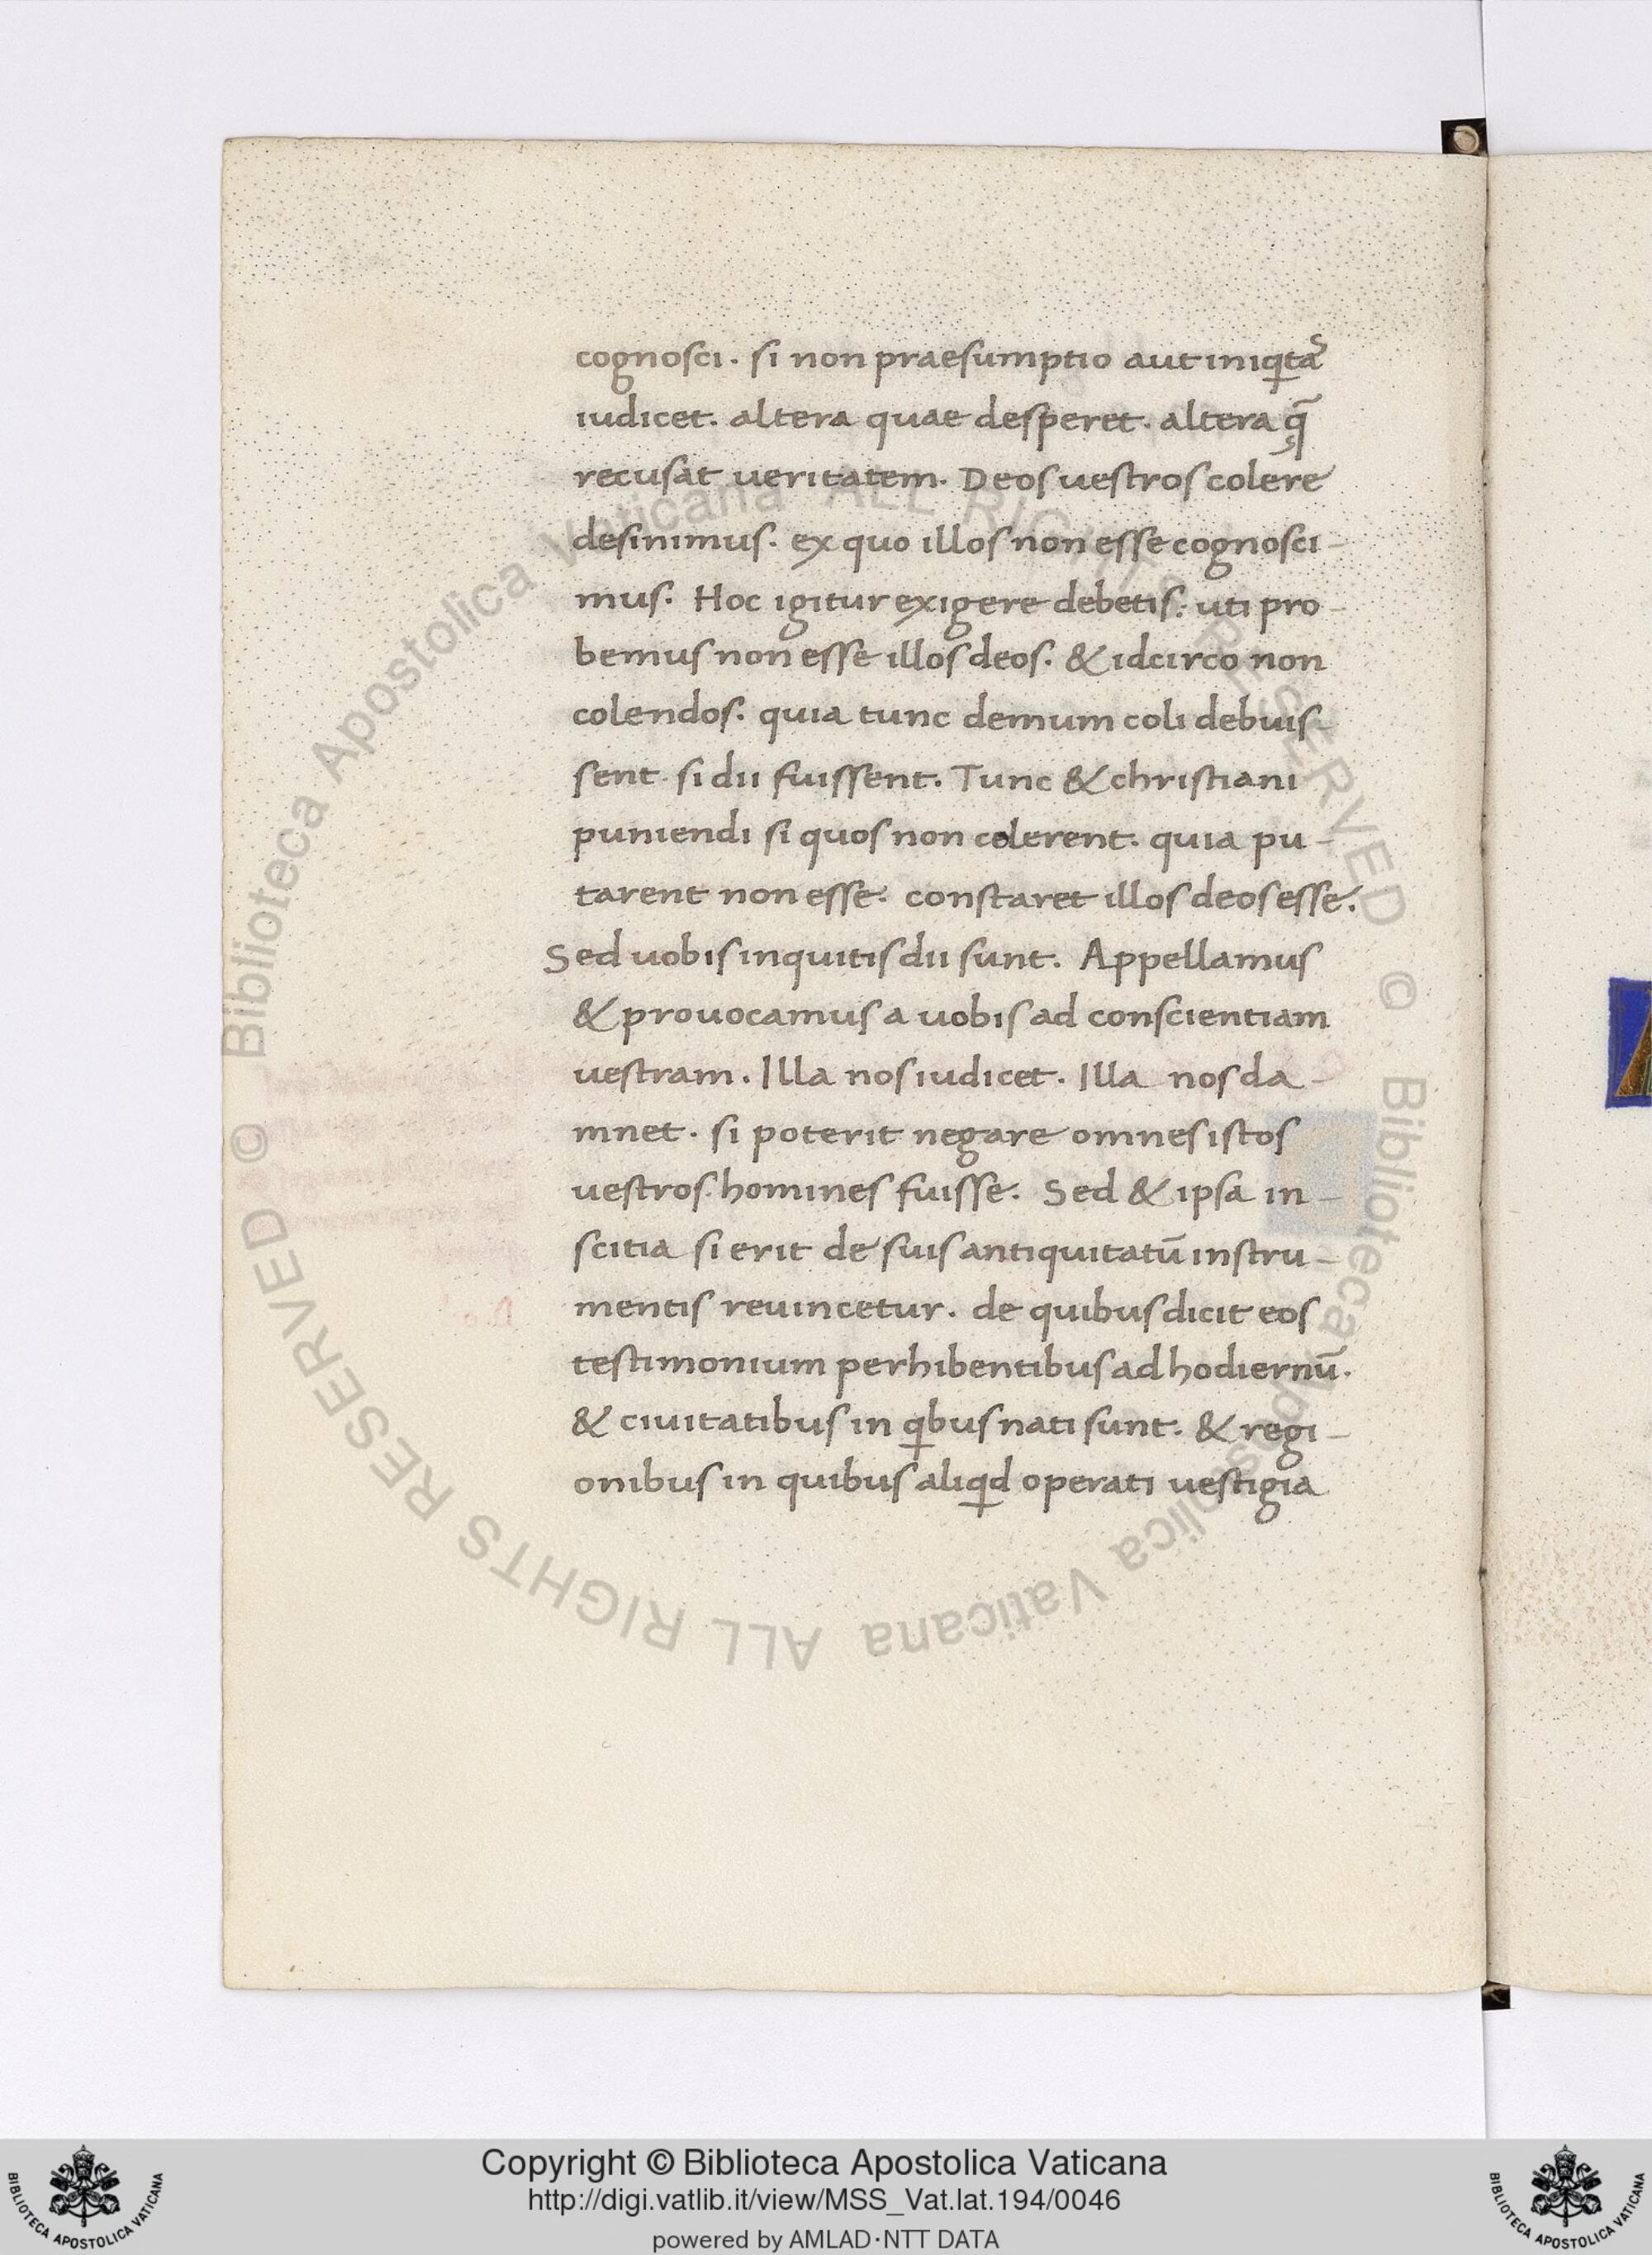 cognosci. si non praesumptio aut iniqͥtaˢ
iudicet. altera quae desperet. altera q̄
recusat ueritatem. Deos uestros colere
desinimus. ex quo illos non esse cognosci-
mus. Hoc igitur exigere debetis. uti pro-
bemus non esse illos deos. & idcirco non
colendos. quia tunc demum coli debuis-
sent si dii fuissent. Tunc & christiani
puniendi si quos non colerent. quia pu-
tarent non esse. constaret illos deos esse.
Sed uobis inquitis dii sunt. Appellamus
& prouocamus a uobis ad conscientiam
uestram. Illa nos iudicet. Illa nos da-
mnet. si poterit negare omnes istos
uestros homines fuisse. Sed & ipsa in-
scitia si erit de suis antiquitatū instru-
mentis reuincetur. de quibus dicit eos
testimonium perhibentibus ad hodiernū.
& ciuitatibus in qͥbus nati sunt. & regi-
onibus in quibus aliqͥd operati uestigia
© Biblioteca Apostolica Vaticana ALL RIGHTS RESERVED © Biblioteca Apostolica Vaticana ALL RIGHTS RESERVED
Copyright © Biblioteca Apostolica Vaticana
http://digi.vatlib.it/view/MSS_Vat.lat.194/0046
powered by AMLAD·NTT DATA
BIBLIOTECA APOSTOLICA VATICANA
BIBLIOTECA APOSTOLICA VATICANA